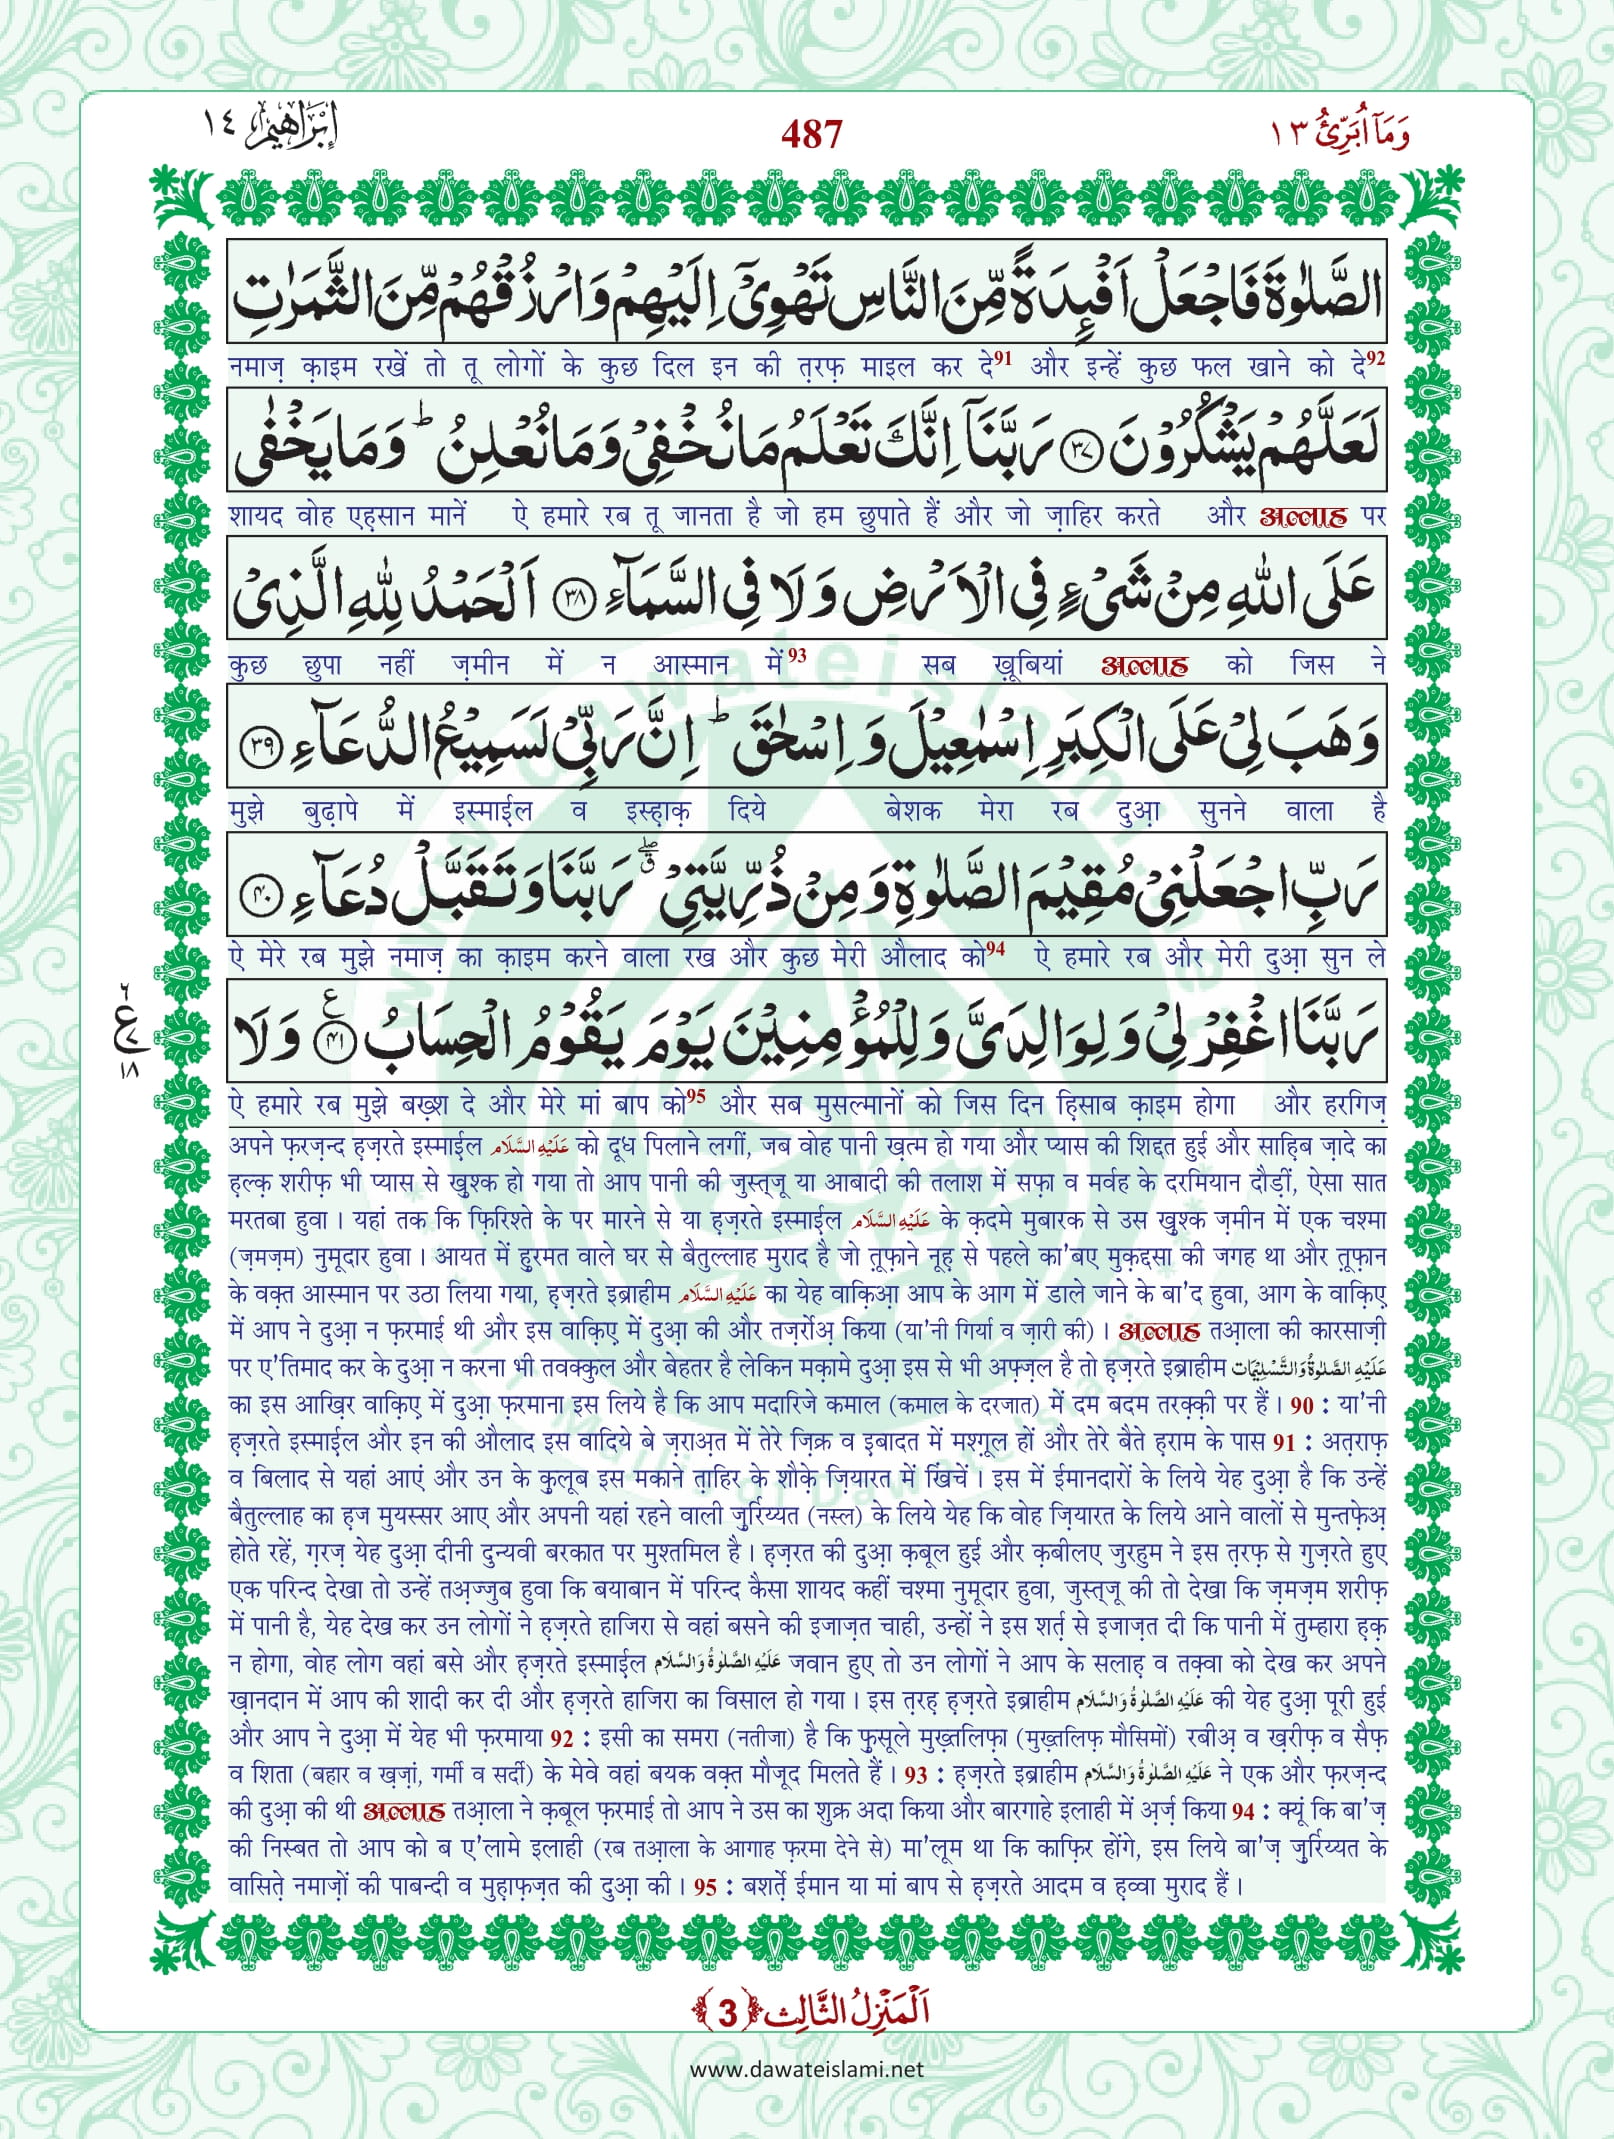 وَمَآ اُبَرِّئُ ١٣
487
اِبْرٰهِيْم ١٤
الصَّلٰوةَ فَاجْعَلْ اَفْـِٕدَةً مِّنَ النَّاسِ تَهْوِىْۤ اِلَيْهِمْ وَارْزُقْهُمْ مِّنَ الثَّمَرٰتِ
नमाज़ क़ाइम रखें तो तू लोगों के कुछ दिल इन की त़रफ़ माइल कर दे91 और इन्हें कुछ फल खाने को दे92
لَعَلَّهُمْ يَشْكُرُوْنَ ﴿٣٧﴾ رَبَّنَاۤ اِنَّكَ تَعْلَمُ مَا نُخْفِىْ وَمَا نُعْلِنُ ؕ وَمَا يَخْفٰى
शायद वोह एह़सान मानें ऐ हमारे रब तू जानता है जो हम छुपाते हैं और जो ज़ाहिर करते और अल्लाह पर
عَلَى اللّٰهِ مِنْ شَىْءٍ فِى الْاَرْضِ وَلَا فِى السَّمَآءِ ﴿٣٨﴾ اَلْحَمْدُ لِلّٰهِ الَّذِىْ
कुछ छुपा नहीं ज़मीन में न आस्मान में93 सब ख़ूबियां अल्लाह को जिस ने
وَهَبَ لِىْ عَلَى الْكِبَرِ اِسْمٰعِيْلَ وَاِسْحٰقَ ؕ اِنَّ رَبِّىْ لَسَمِيْعُ الدُّعَآءِ ﴿٣٩﴾
मुझे बुढ़ापे में इस्माईल व इस्ह़ाक़ दिये बेशक मेरा रब दुआ़ सुनने वाला है
رَبِّ اجْعَلْنِىْ مُقِيْمَ الصَّلٰوةِ وَمِنْ ذُرِّيَّتِىْ ۖۗ رَبَّنَا وَتَقَبَّلْ دُعَآءِ ﴿٤٠﴾
ऐ मेरे रब मुझे नमाज़ का क़ाइम करने वाला रख और कुछ मेरी औलाद को94 ऐ हमारे रब और मेरी दुआ़ सुन ले
رَبَّنَا اغْفِرْ لِىْ وَلِوَالِدَىَّ وَلِلْمُؤْمِنِيْنَ يَوْمَ يَقُوْمُ الْحِسَابُ ﴿٤١﴾ ع وَلَا
٦ ع ٧ ١٨
ऐ हमारे रब मुझे बख़्श दे और मेरे मां बाप को95 और सब मुसल्मानों को जिस दिन ह़िसाब क़ाइम होगा और हरगिज़
अपने फ़रज़न्द ह़ज़रते इस्माईल عَلَيْهِ السَّلَام को दूध पिलाने लगीं, जब वोह पानी ख़त्म हो गया और प्यास की शिद्दत हुई और साह़िब ज़ादे का
ह़ल्क़ शरीफ़ भी प्यास से ख़ुश्क हो गया तो आप पानी की जुस्त्जू या आबादी की तलाश में सफ़ा व मर्वह के दरमियान दौड़ीं, ऐसा सात
मरतबा हुवा । यहां तक कि फ़िरिश्ते के पर मारने से या ह़ज़रते इस्माईल عَلَيْهِ السَّلَام के क़दमे मुबारक से उस ख़ुश्क ज़मीन में एक चश्मा
(ज़मज़म) नुमूदार हुवा । आयत में हुरमत वाले घर से बैतुल्लाह मुराद है जो तूफ़ाने नूह़ से पहले का'बए मुक़द्दसा की जगह था और तूफ़ान
के वक़्त आस्मान पर उठा लिया गया, ह़ज़रते इब्राहीम عَلَيْهِ السَّلَام का येह वाक़िआ़ आप के आग में डाले जाने के बा'द हुवा, आग के वाक़िए
में आप ने दुआ़ न फ़रमाई थी और इस वाक़िए में दुआ़ की और तज़र्रोअ़ किया (या'नी गिर्या व ज़ारी की) । अल्लाह तआ़ला की कारसाज़ी
पर ए'तिमाद कर के दुआ़ न करना भी तवक्कुल और बेहतर है लेकिन मक़ामे दुआ़ इस से भी अफ़्ज़ल है तो ह़ज़रते इब्राहीम عَلَيْهِ الصَّلٰوةُ وَالتَّسْلِيْمَات
का इस आख़िर वाक़िए में दुआ़ फ़रमाना इस लिये है कि आप मदारिजे कमाल (कमाल के दरजात) में दम बदम तरक़्क़ी पर हैं । 90 : या'नी
ह़ज़रते इस्माईल और इन की औलाद इस वादिये बे ज़राअ़त में तेरे ज़िक्र व इ़बादत में मश्ग़ूल हों और तेरे बैते ह़राम के पास 91 : अत़राफ़
व बिलाद से यहां आएं और उन के क़ुलूब इस मकाने त़ाहिर के शौक़े ज़ियारत में खिंचें । इस में ईमानदारों के लिये येह दुआ़ है कि उन्हें
बैतुल्लाह का ह़ज मुयस्सर आए और अपनी यहां रहने वाली ज़ुर्रिय्यत (नस्ल) के लिये येह कि वोह ज़ियारत के लिये आने वालों से मुन्तफ़ेअ़
होते रहें, ग़रज़ येह दुआ़ दीनी दुन्यवी बरकात पर मुश्तमिल है । ह़ज़रत की दुआ़ क़बूल हुई और क़बीलए जुरहुम ने इस त़रफ़ से गुज़रते हुए
एक परिन्द देखा तो उन्हें तअ़ज्जुब हुवा कि बयाबान में परिन्द कैसा शायद कहीं चश्मा नुमूदार हुवा, जुस्त्जू की तो देखा कि ज़मज़म शरीफ़
में पानी है, येह देख कर उन लोगों ने ह़ज़रते हाजिरा से वहां बसने की इजाज़त चाही, उन्हों ने इस शर्त़ से इजाज़त दी कि पानी में तुम्हारा ह़क़
न होगा, वोह लोग वहां बसे और ह़ज़रते इस्माईल عَلَيْهِ الصَّلٰوةُ وَالسَّلَام जवान हुए तो उन लोगों ने आप के सलाह़ व तक़्वा को देख कर अपने
ख़ानदान में आप की शादी कर दी और ह़ज़रते हाजिरा का विसाल हो गया । इस त़रह़ ह़ज़रते इब्राहीम عَلَيْهِ الصَّلٰوةُ وَالسَّلَام की येह दुआ़ पूरी हुई
और आप ने दुआ़ में येह भी फ़रमाया 92 : इसी का समरा (नतीजा) है कि फ़ुसूले मुख़्तलिफ़ा (मुख़्तलिफ़ मौसिमों) रबीअ़ व ख़रीफ़ व सैफ़
व शिता (बहार व ख़ज़ां, गर्मी व सर्दी) के मेवे वहां बयक वक़्त मौजूद मिलते हैं । 93 : ह़ज़रते इब्राहीम عَلَيْهِ الصَّلٰوةُ وَالسَّلَام ने एक और फ़रज़न्द
की दुआ़ की थी अल्लाह तआ़ला ने क़बूल फ़रमाई तो आप ने उस का शुक्र अदा किया और बारगाहे इलाही में अ़र्ज़ किया 94 : क्यूं कि बा'ज़
की निस्बत तो आप को ब ए'लामे इलाही (रब तआ़ला के आगाह फ़रमा देने से) मा'लूम था कि काफ़िर होंगे, इस लिये बा'ज़ ज़ुर्रिय्यत के
वासित़े नमाज़ों की पाबन्दी व मुह़ाफ़ज़त की दुआ़ की । 95 : बशर्त़े ईमान या मां बाप से ह़ज़रते आदम व ह़व्वा मुराद हैं ।
اَلْمَنْزِلُ الثَّالِث ﴿3﴾
www.dawateislami.net